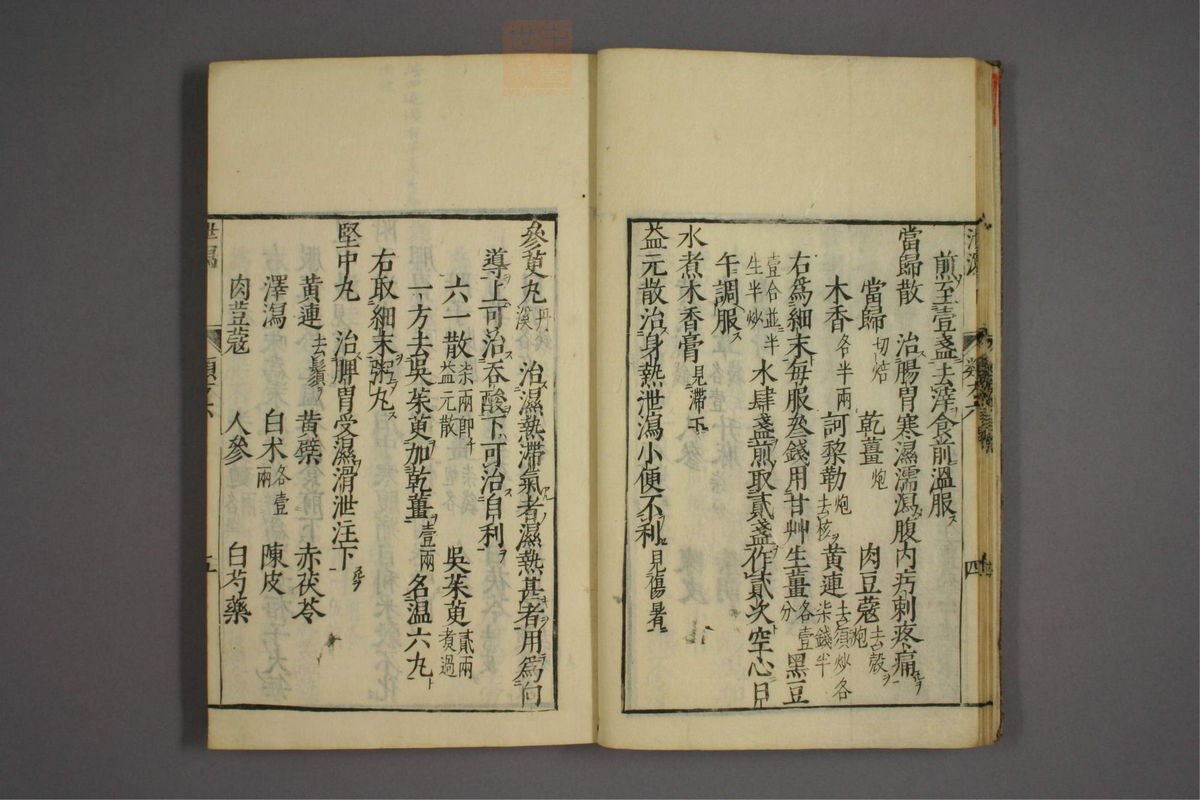 煎至壹盞去滓食前溫服ス
當歸散　治腸胃寒濕濡瀉腹内㽲刺疼痛
當歸切焙　乾薑炮　肉豆蔻去殼炮
木香各半兩　訶黎勒炮去核　黃連去須炒各柒錢半
右爲細末每服叄錢用甘艸生薑各壹分黑豆
壹合並半生半炒　水肆盞煎取貳盞作貳次空心日
午調服
水煮木香膏見滯下
益元散治身熱泄瀉小便不利見傷暑
參萸丸丹溪　治濕熱滯氣者濕熱甚者用爲向
導上可治吞酸下可治自利
六一散柒兩即益元散　吳茱萸貳兩煮過
一方去吳茱萸加乾薑壹兩名温六丸
右取細末粥丸
堅中丸　治脾胃受濕滑泄注下
黃連去鬚　黃蘗　赤茯苓
澤瀉　白朮各壹兩　陳皮
肉荳蔻　人參　白芍藥